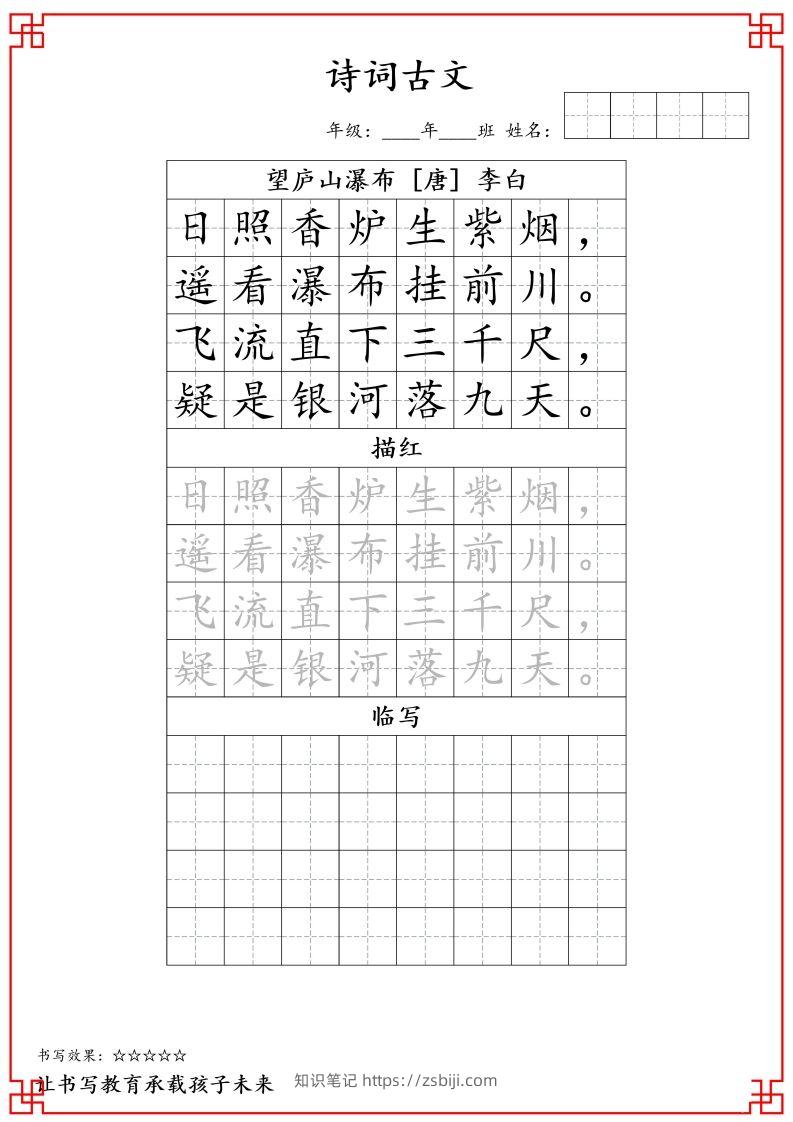 诗词古文
年级：____年____班 姓名：
望庐山瀑布［唐］李白
日照香炉生紫烟，
遥看瀑布挂前川。
飞流直下三千尺，
疑是银河落九天。
描红
日照香炉生紫烟，
遥看瀑布挂前川。
飞流直下三千尺，
疑是银河落九天。
临写
书写效果：☆☆☆☆☆
让书写教育承载孩子未来 知识笔记 https://zsbiji.com